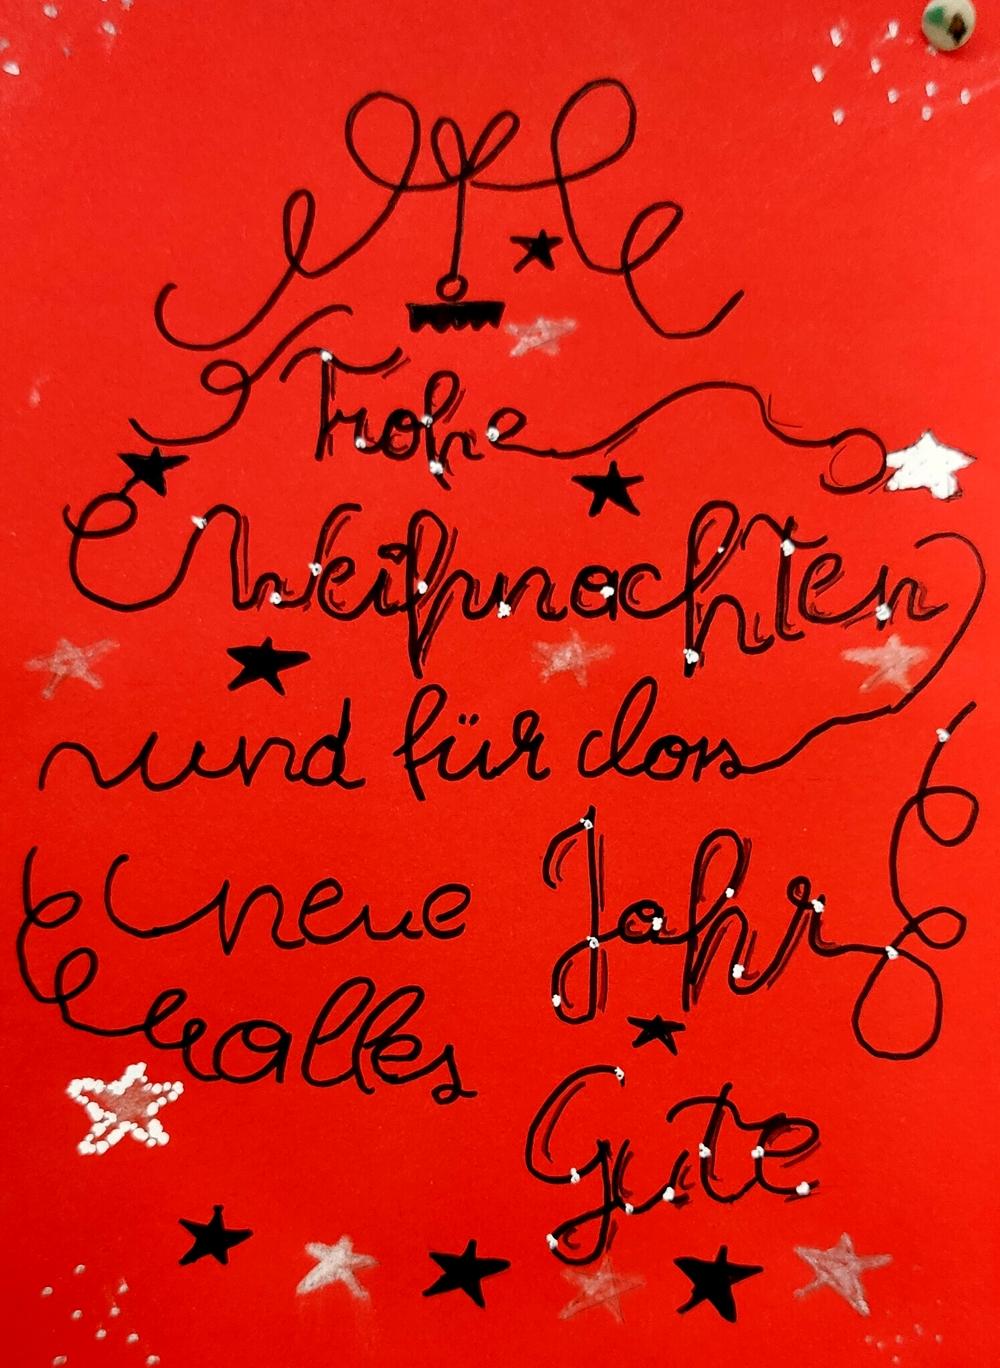 Frohe
Weihnachten
und für das
neue Jahr
alles
Gute